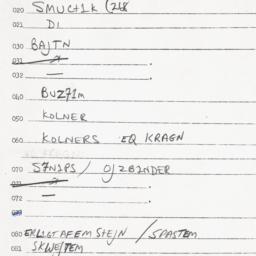 020 SMUCH1K (218
021 DI
030 BAJTN
031
032 —
040 BUZ71M
050 KOLNER
060 KOLNERS EQ KRAGN
070 S7N1PS / OJ2B2NDER
072 —
080 EKLLGTAFEMSTEJN / SPASTEM
081 SKWEJTEM